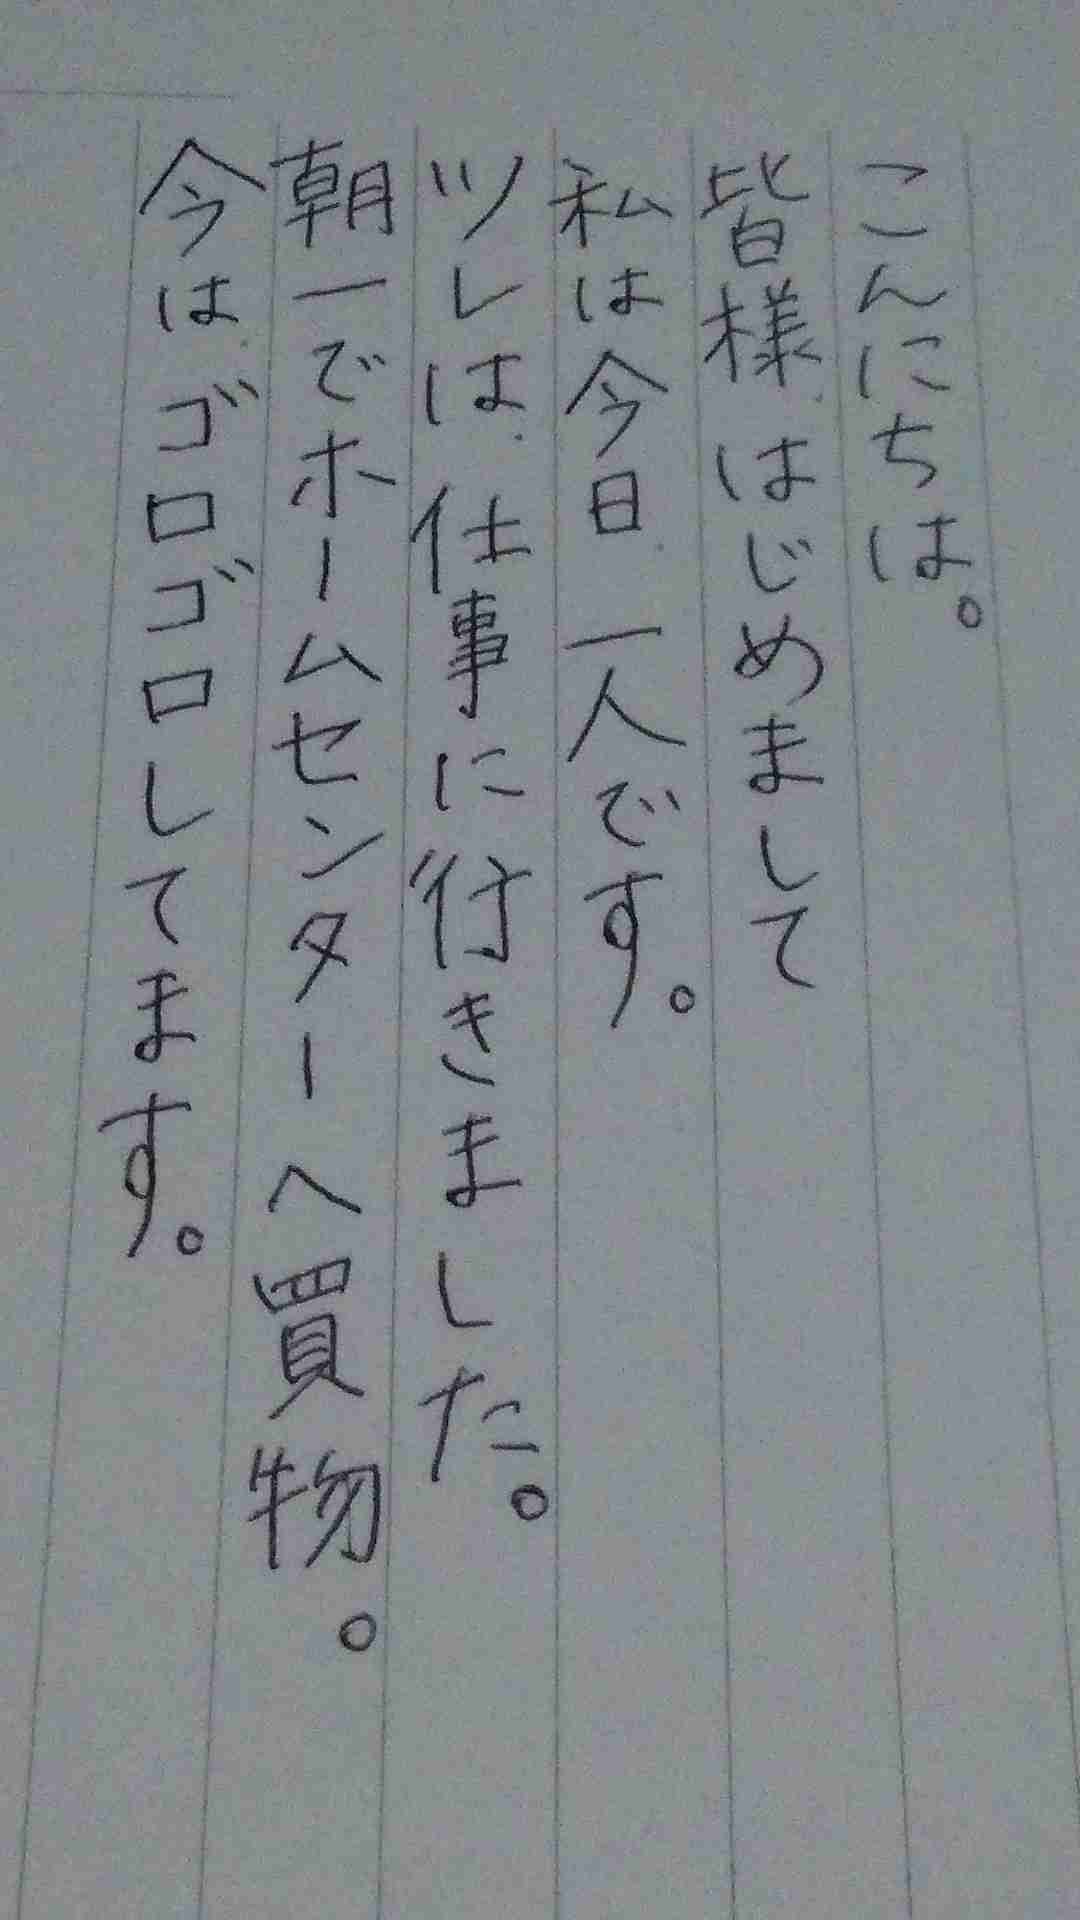 こんにちは。
皆様はじめまして
私は今日一人です。
ツレは仕事に行きました。
朝一でホームセンターへ買物。
今はゴロゴロしてます。